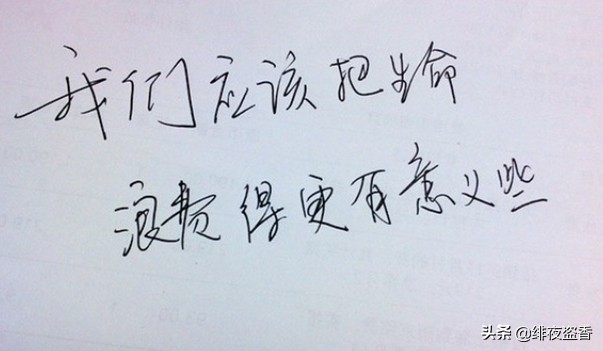 我们应该把生命
浪费得更有意义些
头条 @绯夜盗香